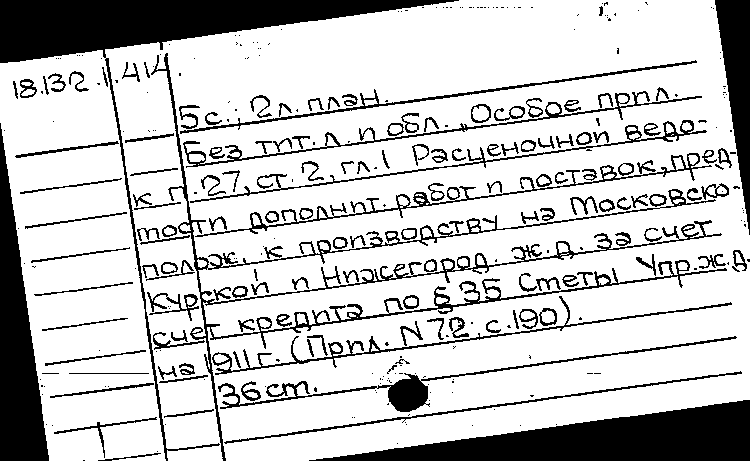 18.132.1.414.
5 с.; 2 л. план.
Без тит. л. и обл. „Особое прил.
к п. 27, ст. 2, гл. 1 Расценочной ведо-
мости дополнит. работ и поставок, пред-
полож. к производству на Московско-
Курской и Нижегород. ж.д. за счет
счет кредита по § 35 Сметы Упр. ж.д.
на 1911 г. (Прил. N 72; с. 190).
36 см.